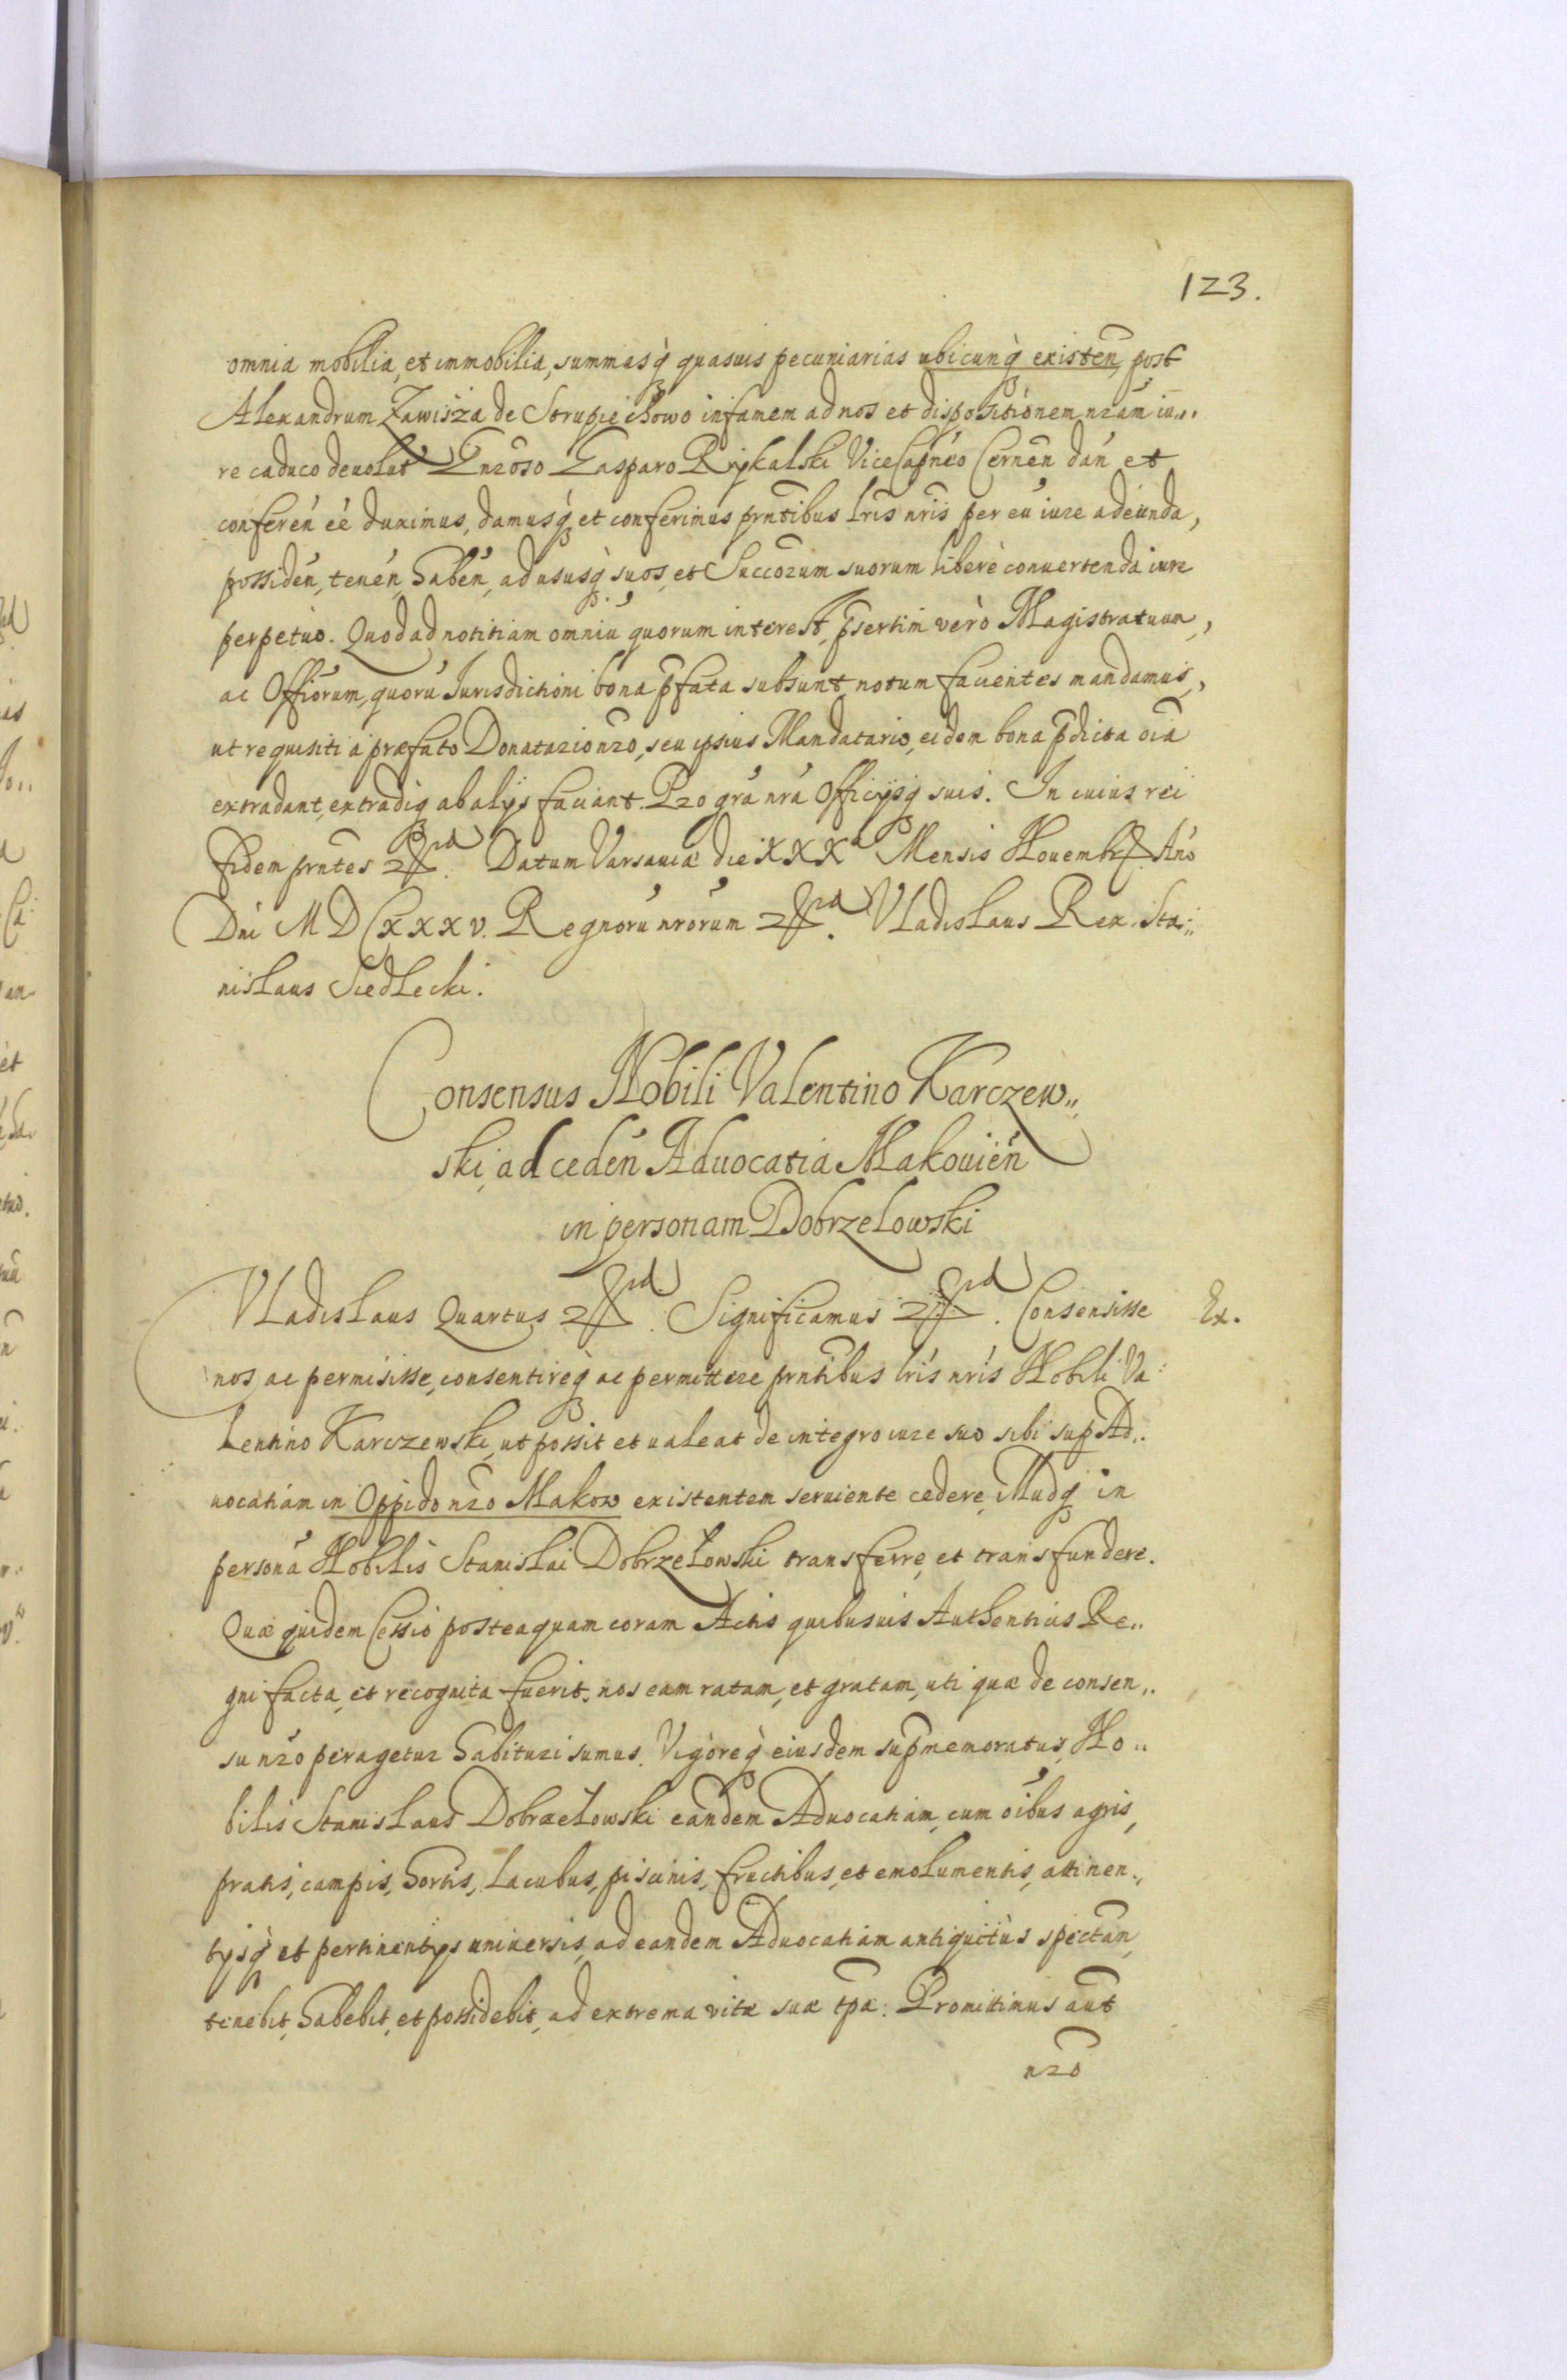 123.
omnia mobilia, et immobilia, summasq́ quasuis pecuniarias ubicunq́ existeñ, post
Alexandrum Zawisza de Strupiechowo infamem ad nos et dispositionem nrãm iu„
re caduco deuolut Gnroso Gasparo Rykalski ViceCapneo Cernen dań et
conferén éé duximus, damusq́ et conferimus prntibus lris nris per eú iure adeunda,
possidén, tenén, habén, ad ususq́ suos, et Succorum suorum liberè conuertenda iure
perpetuo. Quod ad notitiam omniú quorum interest, p̃sertim verò Magistratuum,
ac Offiorum, quorú Jurisdictioni bona p̃fata subsunt, notum facientes mandamus,
ut requisiti à præfato Donatario nro, seu ipsius Mandatario, eidem bona p̃dicta oia
extradant, extradiq́ ab alijs faciant. Pro grá nrá Officijsq́ suis. In cuius rei
fidem prntes Datum Varsauiæ die XXXa Mensis Nouemb Ano
Dni MDCXXXV. Regnorú nrorum Vladislaus Rex. Sta„
nislaus Siedlecki.
Consensus Nobili Valentino Karczew„
ski, ad cedén Aduocatia Makouién
in personam Dobrzelowski
Vladislaus Quartus Significamus Consensisse
Ex.
nos ac permisisse, consentireq́ ac permittere prntibus lris nris Nobili Va„
lentino Karczewski, ut possit et ualeat de integro iure suo sibi sup Ad„
uocatiam in Oppido nro Makow existentem seruiente cedere, illudq́ in
personá Nobilis Stanislai Dobrzelowski transferre, et transfundere.
Quæ quidem Cessio posteaquam coram Actis quibusuis Authenticis Re„
gni facta, et recognita fuerit, nos eam ratam, et gratam, uti quæ de consen„
su nro peragetur habituri sumus. Vigoreq́ eiusdem supmemoratus No„
bilis Stanislaus Dobrzelowski eandem Aduocatiam, cum oibus agris,
pratis, campis, hortis, lacubus, piscinis, fructibus, et emolumentis, attinen„
tijsq́ et pertinentijs uniuersis, ad eandem Aduocatiam antiquitùs spectan,
tenebit, habebit, et possidebit, ad extrema vitæ suæ tp̃a. Promittimus aut
nro